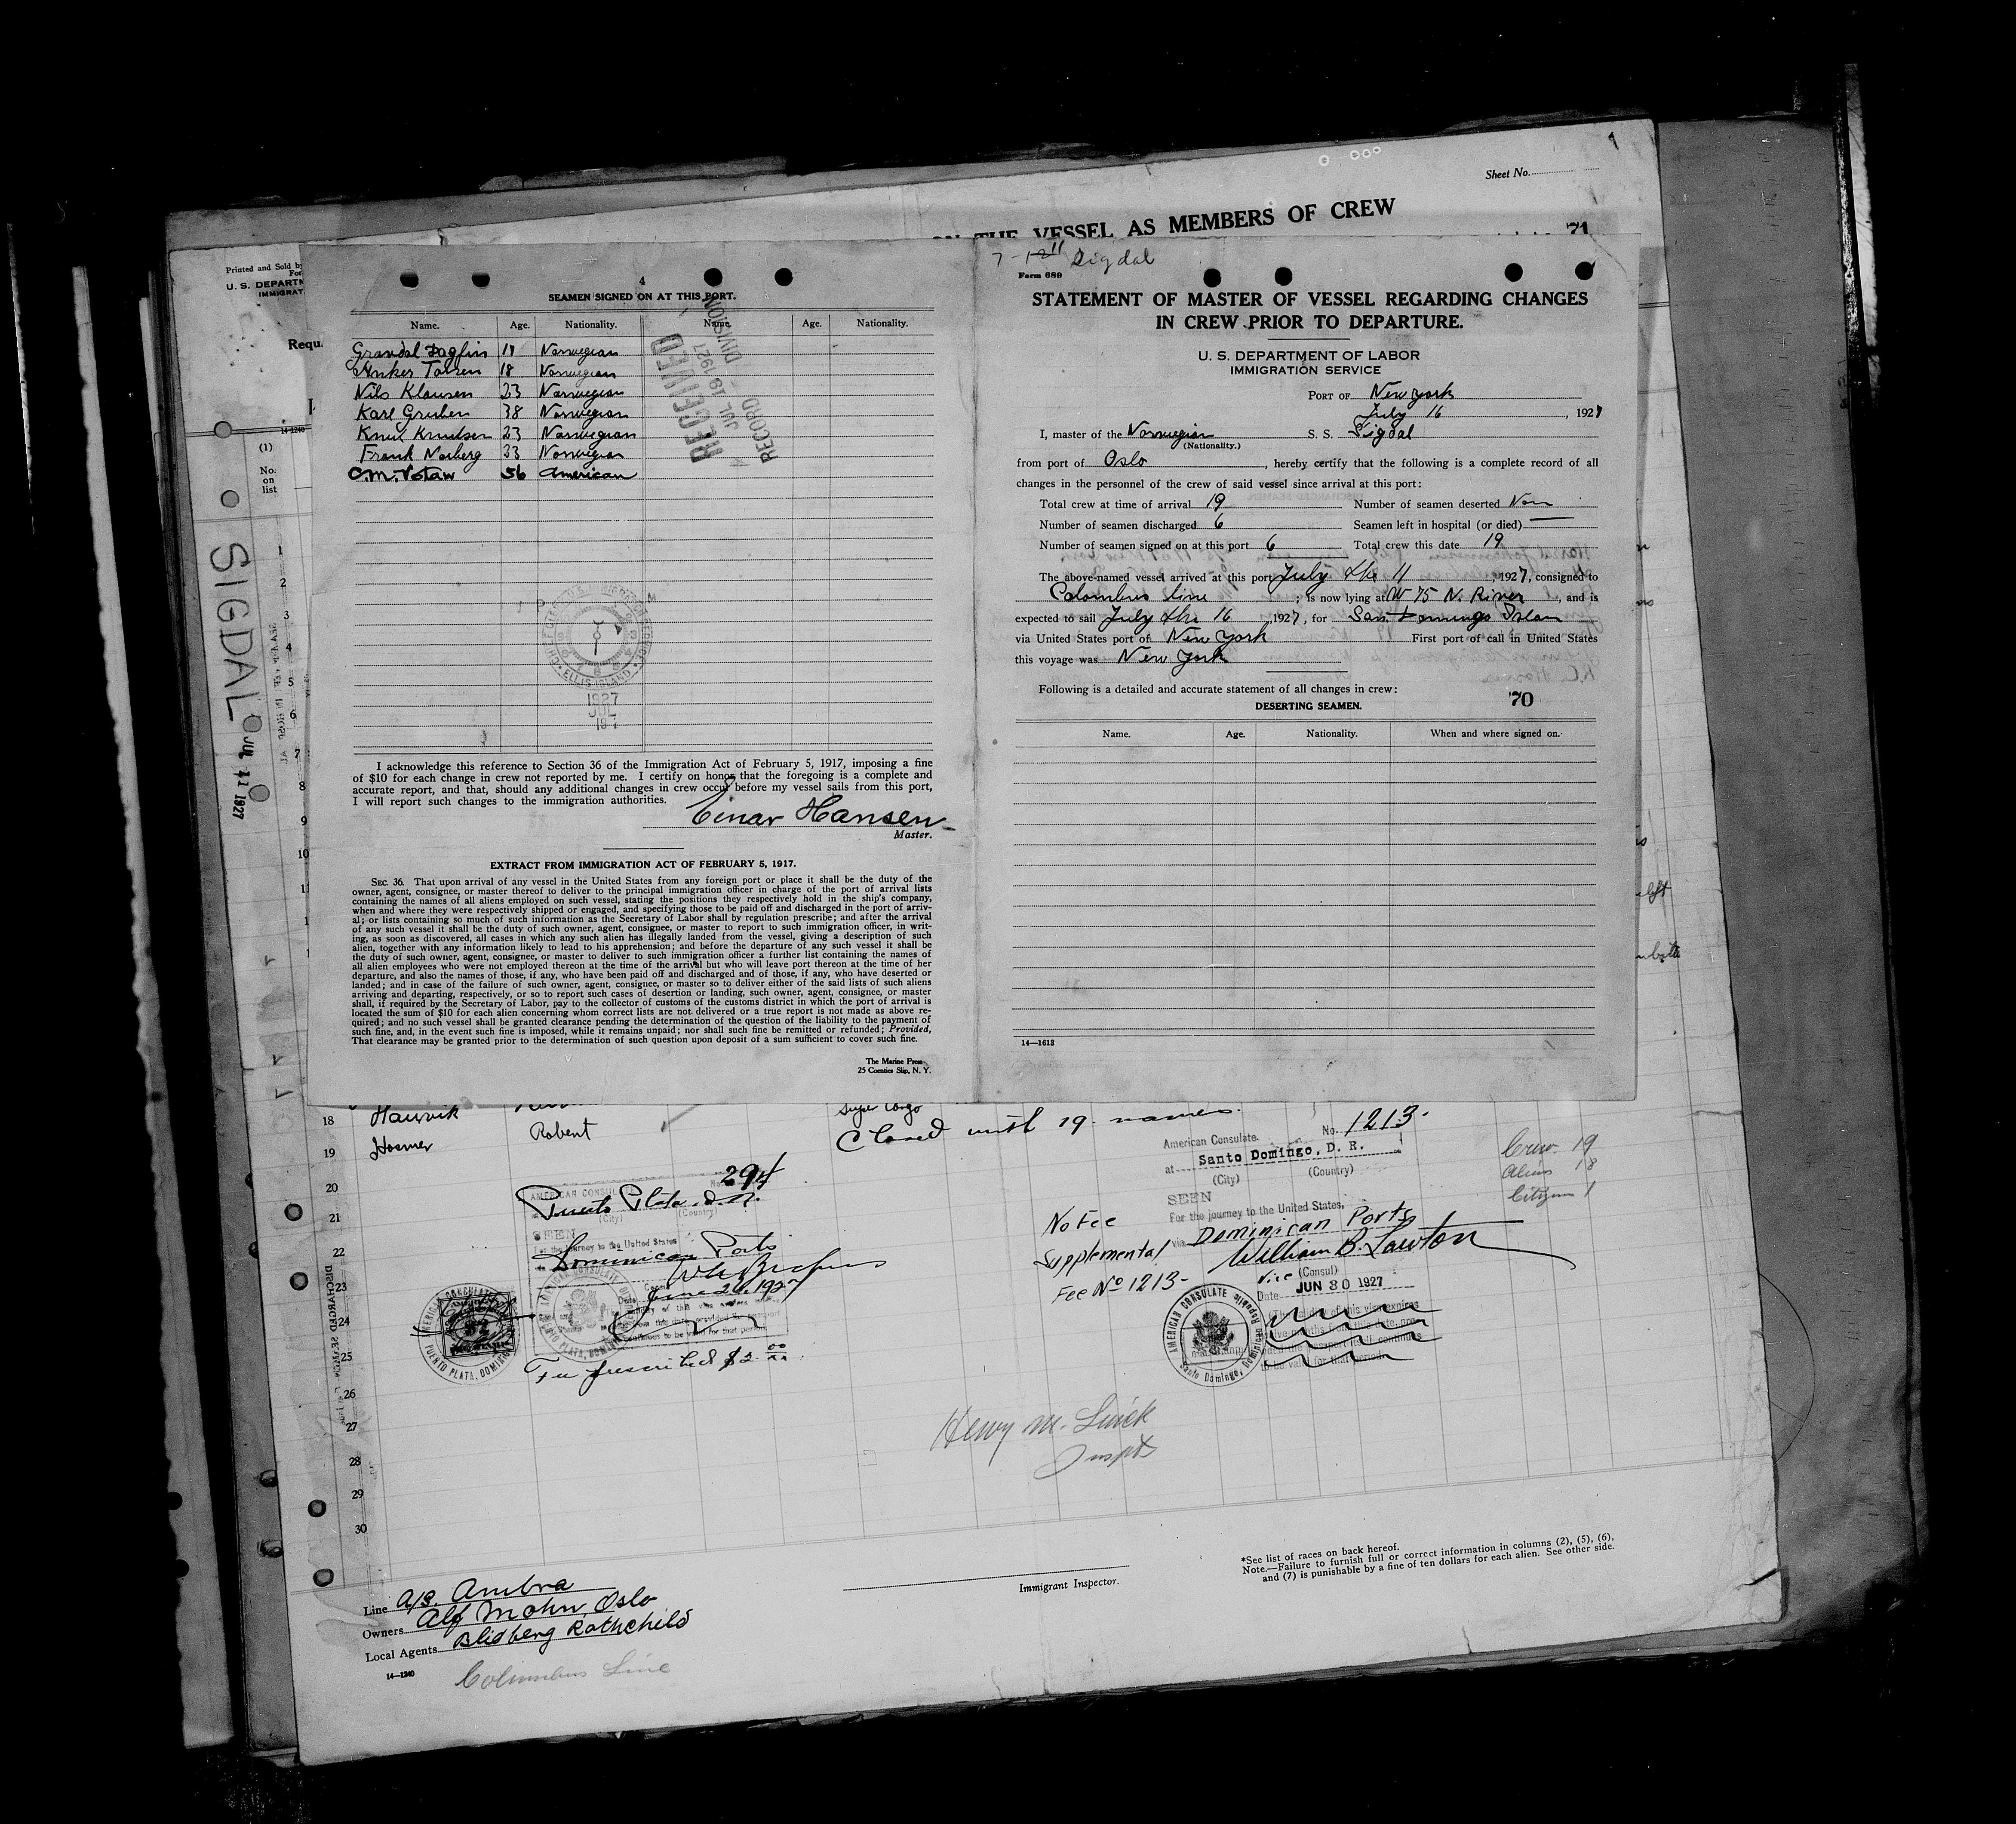 Sheet No.
THE VESSEL AS MEMBERS OF CREW
71
Printed and Sold by
U. S. DEPARTM
IMMIGRAT
Requ
14-1240
(1)
No.
on
list
SIGDAL
JUL 11 1927
4
SEAMEN SIGNED ON AT THIS PORT.
Name. Age. Nationality. Name. Age. Nationality.
Grandal Dagfin Norwegian
Anker 18 Norwegian
Nils Klausen 23 Norwegian
Karl Gruben 38 Norwegian
Knut Knudsen 23 Norwegian
Frank Norberg 33 Norwegian
C.M. Votaw 56 American
RECEIVED
JUL 19 1927
RECORD DIVISION
ELLIS ISLAND
1927
JUL
I acknowledge this reference to Section 36 of the Immigration Act of February 5, 1917, imposing a fine
of $10 for each change in crew not reported by me. I certify on honor that the foregoing is a complete and
accurate report, and that, should any additional changes in crew occur before my vessel sails from this port,
I will report such changes to the immigration authorities.
Einar Hansen
Master.
EXTRACT FROM IMMIGRATION ACT OF FEBRUARY 5, 1917.
SEC. 36. That upon arrival of any vessel in the United States from any foreign port or place it shall be the duty of the
owner, agent, consignee, or master thereof to deliver to the principal immigration officer in charge of the port of arrival lists
containing the names of all aliens employed on such vessel, stating the positions they respectively hold in the ship's company,
when and where they were respectively shipped or engaged, and specifying those to be paid off and discharged in the port of arriv-
al; or lists containing so much of such information as the Secretary of Labor shall by regulation prescribe; and after the arrival
of any such vessel it shall be the duty of such owner, agent, consignee, or master to report to such immigration officer, in writ-
ing, as soon as discovered, all cases in which any such alien has illegally landed from the vessel, giving a description of such
alien, together with any information likely to lead to his apprehension; and before the departure of any such vessel it shall be
the duty of such owner, agent, consignee, or master to deliver to such immigration officer a further list containing the names of
all alien employees who were not employed thereon at the time of the arrival but who will leave port thereon at the time of her
departure, and also the names of those, if any, who have been paid off and discharged and of those, if any, who have deserted or
landed; and in case of the failure of such owner, agent, consignee, or master so to deliver either of the said lists of such aliens
arriving and departing, respectively, or so to report such cases of desertion or landing, such owner, agent, consignee, or master
shall, if required by the Secretary of Labor, pay to the collector of customs of the customs district in which the port of arrival is
located the sum of $10 for each alien concerning whom correct lists are not delivered or a true report is not made as above re-
quired; and no such vessel shall be granted clearance pending the determination of the question of the liability to the payment of
such fine, and, in the event such fine is imposed, while it remains unpaid; nor shall such fine be remitted or refunded; Provided,
That clearance may be granted prior to the determination of such question upon deposit of a sum sufficient to cover such fine.
The Marine Press
25 Coenties Slip, N. Y.
Sigdal
Form 689
STATEMENT OF MASTER OF VESSEL REGARDING CHANGES
IN CREW PRIOR TO DEPARTURE.
U. S. DEPARTMENT OF LABOR
IMMIGRATION SERVICE
PORT OF New York
July 16, 1927
I, master of the Norwegian S. S. Sigdal
(Nationality.)
from port of Oslo, hereby certify that the following is a complete record of all
changes in the personnel of the crew of said vessel since arrival at this port:
Total crew at time of arrival 19 Number of seamen deserted Non
Number of seamen discharged 6 Seamen left in hospital (or died) —
Number of seamen signed on at this port 6 Total crew this date 19
The above-named vessel arrived at this port July the 11, 1927, consigned to
Colombus line; is now lying at W 75 N. River, and is
expected to sail July the 16, 1927, for San Domingo Islan
via United States port of New York First port of call in United States
this voyage was New York
Following is a detailed and accurate statement of all changes in crew:
'70
DESERTING SEAMEN.
Name. Age. Nationality. When and where signed on.
14—1613
18 Hauvik
19 Hosmer Robert
Super Cargo
Closed with 19 names.
American Consulate. No. 1213-
at Santo Domingo, D. R.
(City) (Country)
SEEN
For the journey to the United States,
via Dominican Ports
William B. Lawton
Vice (Consul)
Date JUN 30 1927
No Fee
Supplemental
Fee No 1213-
AMERICAN CONSULATE
Santo Domingo, Dominican Republic
Crew 19
Aliens 18
Citizen 1
AMERICAN CONSULATE No. 294
Puerto Plata, D.R.
(City) (Country)
SEEN
For the journey to the United States
Dominican Ports
1927
Fee prescribed $2 00
AMERICAN CONSULATE
PUERTO PLATA, DOMINICAN
Henry M. Linick
Inspt
20
21
22
23
24
25
26
27
28
29
30
Immigrant Inspector.
*See list of races on back hereof.
Note.—Failure to furnish full or correct information in columns (2), (5), (6),
and (7) is punishable by a fine of ten dollars for each alien. See other side.
Line A/S. Ambra
Owners Alf Mohn, Oslo
Local Agents Blidberg Rothchild
14—1240
Columbus Line